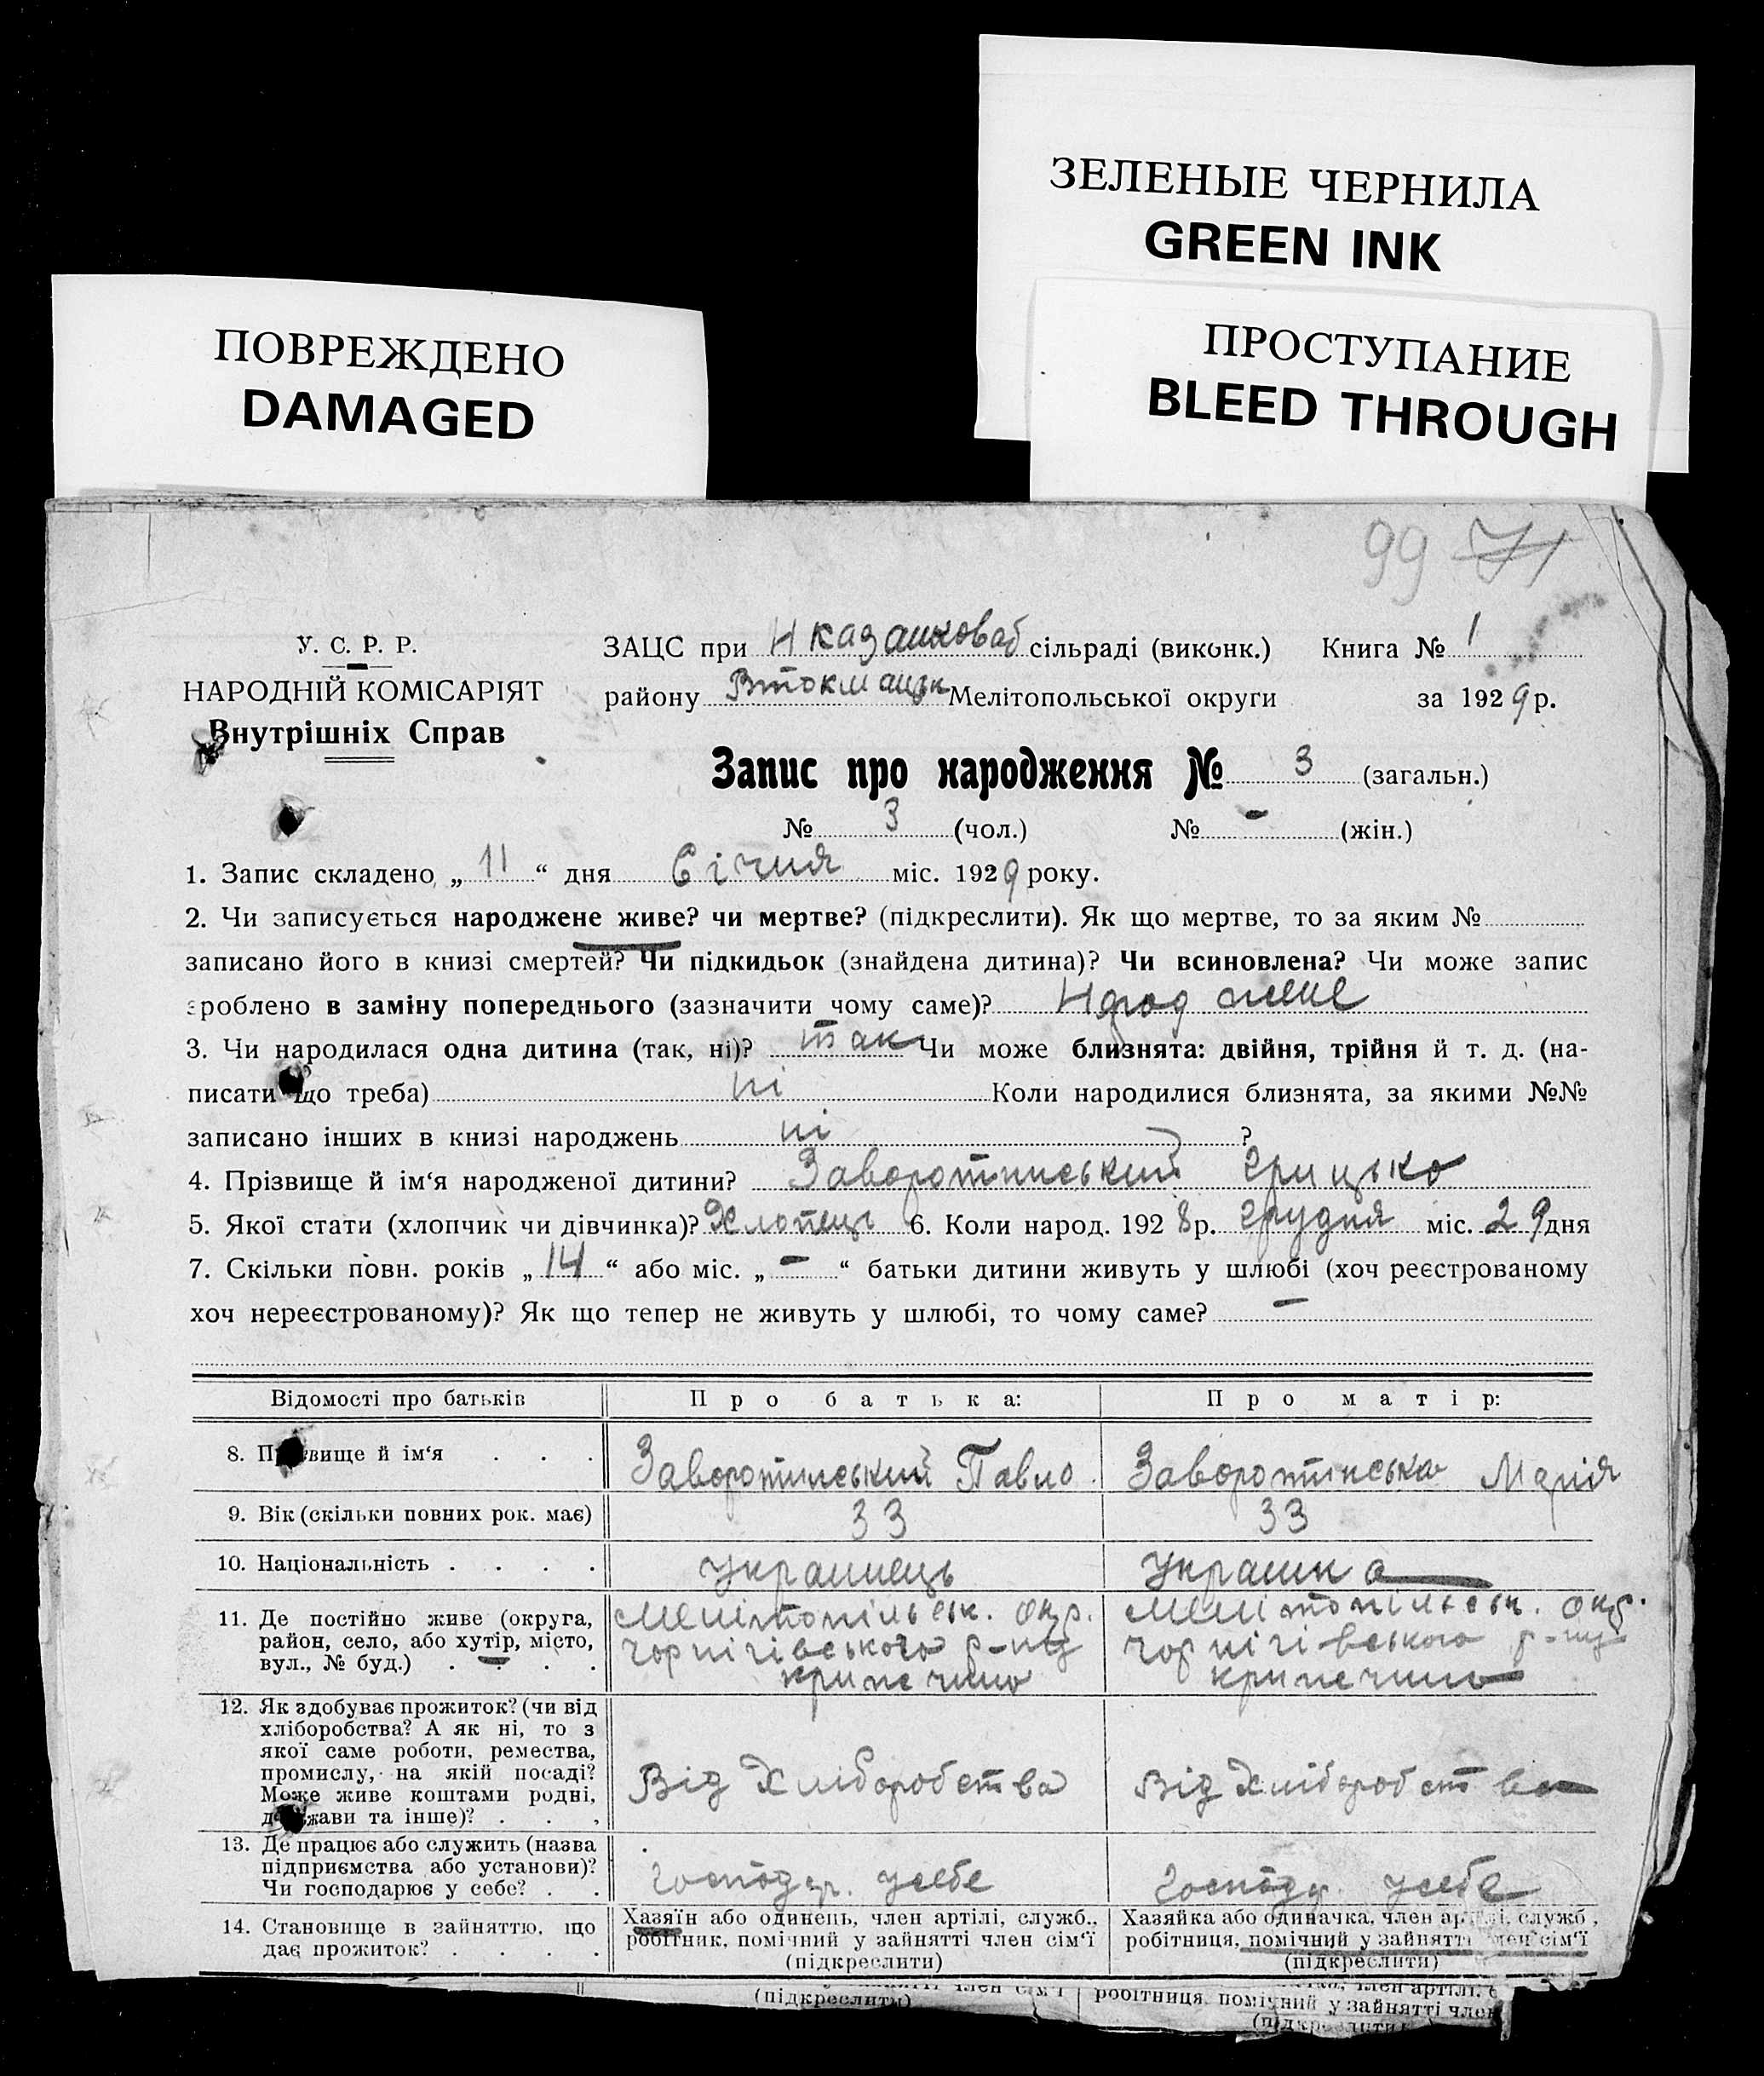 ЗЕЛЕНЫЕ ЧЕРНИЛА
GREEN INK
ПРОСТУПАНИЕ
BLEED THROUGH
ПОВРЕЖДЕНО
DAMAGED
99 71
У. С. Р. Р.
НАРОДНІЙ КОМІСАРІЯТ
Внутрішніх Справ
ЗАЦС при сільраді (виконк.) Книга № 1
району Втокмацьк Мелітопольської округи за 1929 р.
Запис про народження № 3 (загальн.)
№ 3 (чол.) № - (жін.)
1. Запис складено „ 11 “ дня Січня міс. 1929 року.
2. Чи записується народжене живе? чи мертве? (підкреслити). Як що мертве, то за яким №
записано його в книзі смертей? Чи підкидьок (знайдена дитина)? Чи всиновлена? Чи може запис
зроблено в заміну попереднього (зазначити чому саме)?
3. Чи народилася одна дитина (так, ні)? так Чи може близнята: двійня, трійня й т. д. (на-
писати що треба) ні Коли народилися близнята, за якими №№
записано інших в книзі народжень ні ?
4. Прізвище й ім‘я народженої дитини? Заворотинський Грицько
5. Якої стати (хлопчик чи дівчинка)? Хлопець 6. Коли народ. 1928 р. Грудня міс. 29 дня
7. Скільки повн. років „ 14 “ або міс. „ - “ батьки дитини живуть у шлюбі (хоч реєстрованому
хоч нереєстрованому)? Як що тепер не живуть у шлюбі, то чому саме? -
Відомості про батьків Про батька: Про матір:
8. Прізвище й ім‘я . . . Заворотинський Павло. Заворотинська Марія
9. Вік (скільки повних рок. має) 33 33
10. Національність . . . . Українець Українка
11. Де постійно живе (округа, Мелітопільськ. окр. Мелітопільськ. окр.
район, село, або хутір, місто, Чорнігівського р-ну Чорнігівського р-ну
вул., № буд.) . . . .
12. Як здобуває прожиток? (чи від
хліборобства? А як ні, то з
якої саме роботи, ремества,
промислу, на якій посаді? Від Хліборобства Від Хліборобства
Може живе коштами родні,
держави та інше)? . . .
13. Де працює або служить (назва
підприємства або установи)? Господар. усебе Господар. усебе
Чи господарює у себе? . .
14. Становище в зайняттю, що Хазяїн або одинець, член артілі, служб., Хазяйка або одиначка, член артілі, служб.,
дає прожиток? . . . . робітник, помічний у зайнятті член сім‘ї робітниця, помічний у зайнятті член сім‘ї
(підкреслити) (підкреслити)
член сім‘ї член артілі, с
(підкреслити) робітниця, помічний у зайнятті член
(підкреслити)